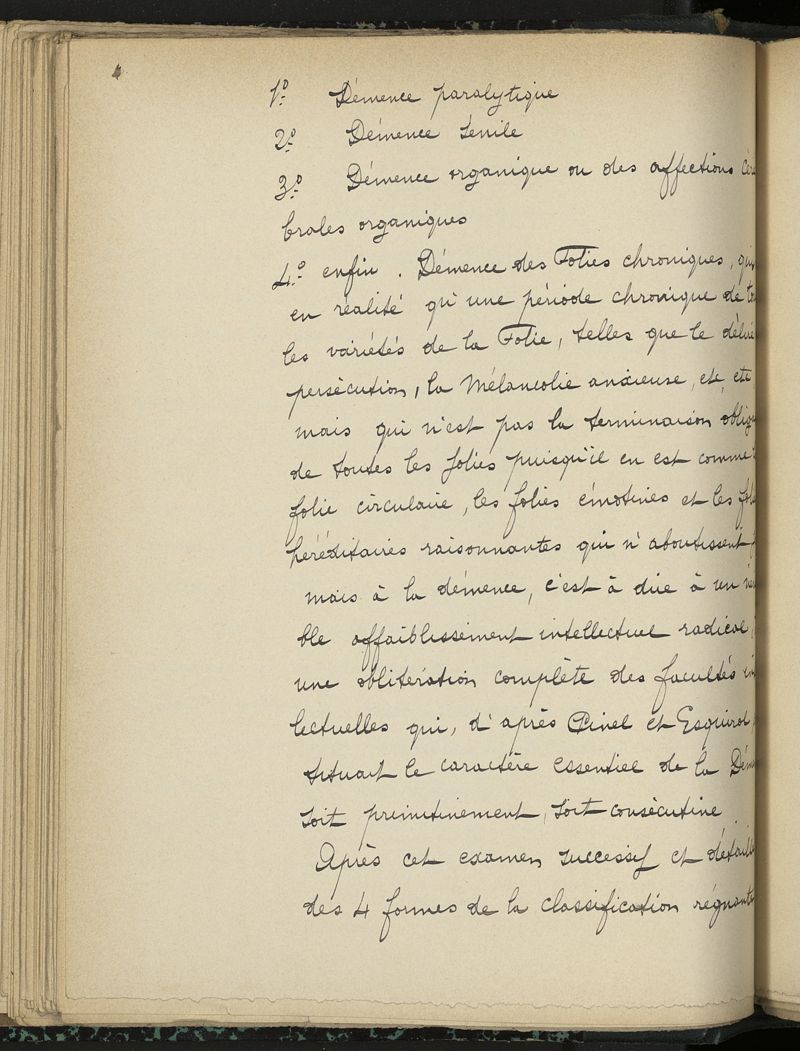 1o Démence paralytique
2o Démence Sénile
3o Démence organique ou des affections cér
brales organiques
4o enfin. Démence des Folies chroniques, qui
en réalité qu'une période chronique de to
les variétés de la Folie, telles que le déli
persécution, la Mélancolie anxieuse, etc, etc
mais qui n'est pas la terminaison oblig
de toutes les folies puisqu'il en est comme
folie circulaire, les folies émotives et les fol
héréditaires raisonnantes qui n'aboutissent
mais à la démence, c'est à dire à un
ble affaiblissement intellectuel radical,
une oblitération complète des facultés in
lectuelles qui, d'après Pinel et Esquirol,
tituait le caractère essentiel de la Dém
soit primitivement, soit consécutive
Après cet examen successif et détaill
des 4 formes de la classification régnante